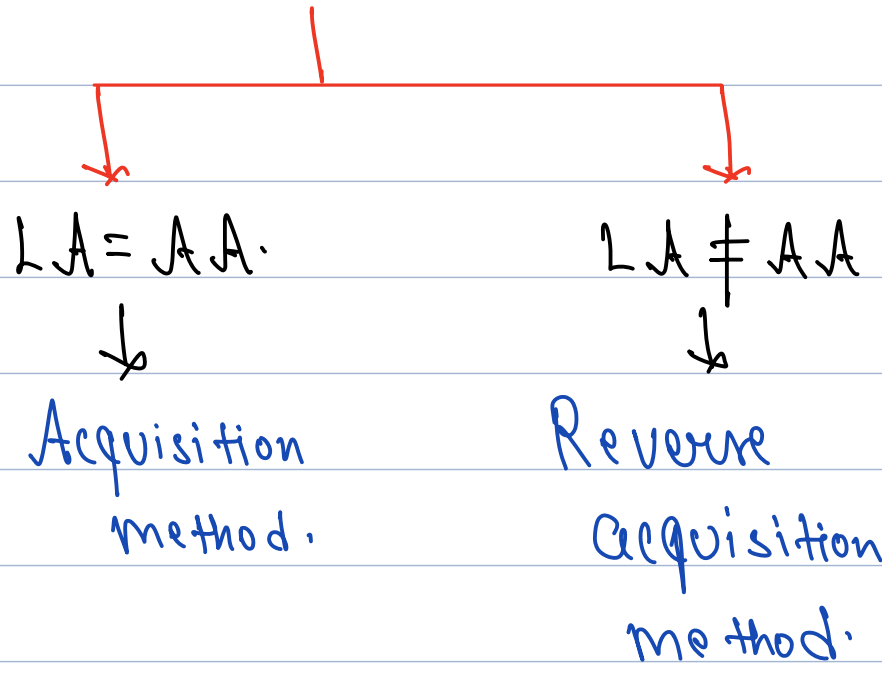 LA = AA.
LA ≠ AA
Acquisition
method.
Reverse
acquisition
method.